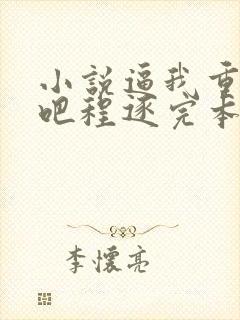 小說逼我重
吧程逐完本
李懷亮